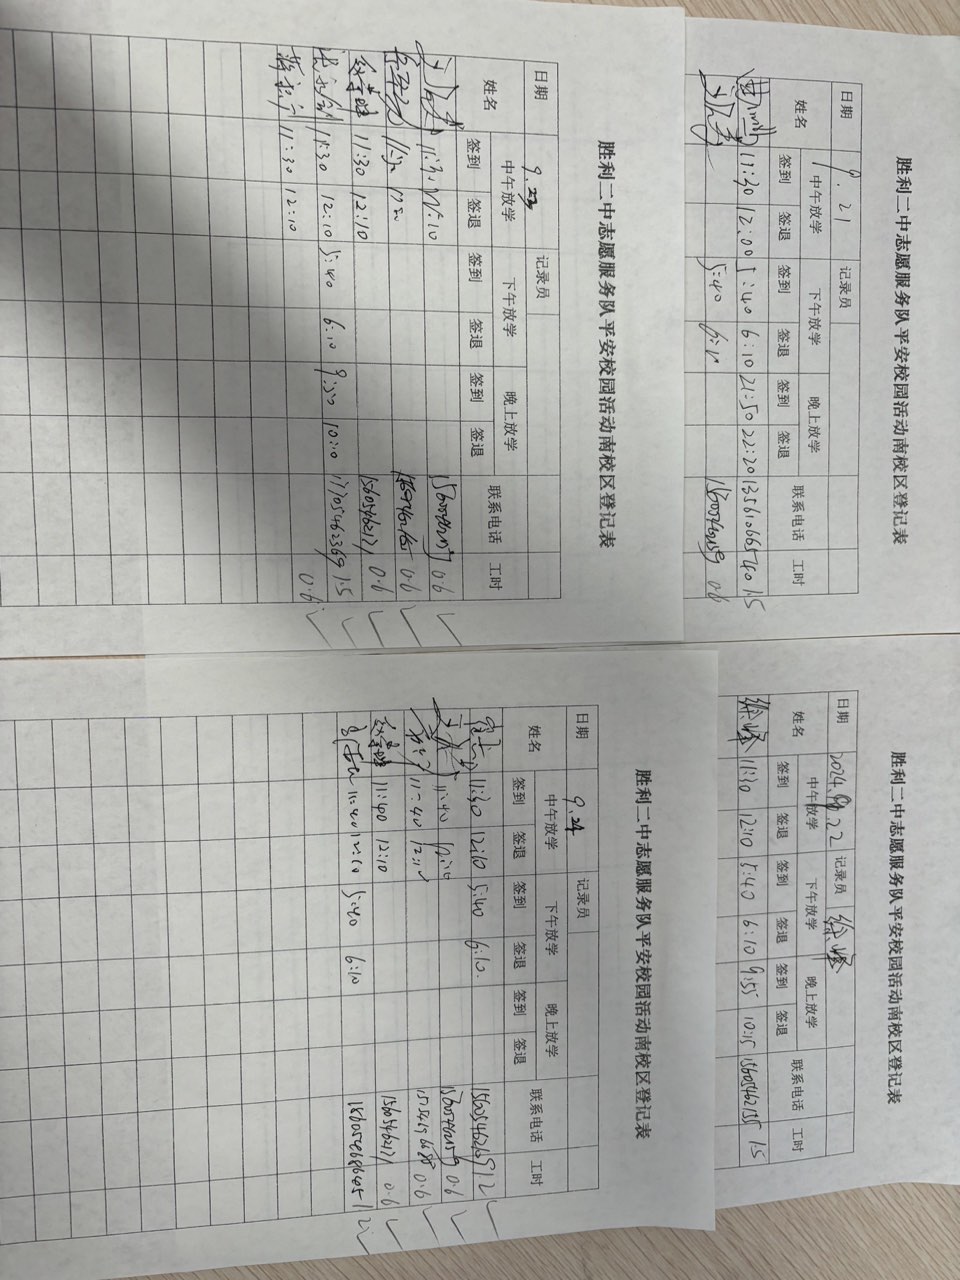 胜利二中志愿服务队平安校园活动南校区登记表
日期 9.21 记录员
姓名 中午放学 下午放学 晚上放学 联系电话 工时
签到 签退 签到 签退 签到 签退
11:30 12:00 5:40 6:10 21:50 22:20 13561066540 1.5
5:40 6:10 0.6
胜利二中志愿服务队平安校园活动南校区登记表
日期 2024.9.22 记录员 徐峰
姓名 中午放学 下午放学 晚上放学 联系电话 工时
签到 签退 签到 签退 签到 签退
徐峰 11:30 12:10 5:40 6:10 9:55 10:15 1.5
胜利二中志愿服务队平安校园活动南校区登记表
日期 9.23 记录员
姓名 中午放学 下午放学 晚上放学 联系电话 工时
签到 签退 签到 签退 签到 签退
0.6
0.6
11:30 12:10 15605462171 0.6
11:30 12:10 5:40 6:10 9:50 10:10 17705462369 1.5
11:30 12:10 0.6
胜利二中志愿服务队平安校园活动南校区登记表
日期 9.24 记录员
姓名 中午放学 下午放学 晚上放学 联系电话 工时
签到 签退 签到 签退 签到 签退
11:40 12:10 5:40 6:10. 1.2
11:40 12:10 0.6
11:40 12:10 0.6
11:40 12:10 15605462171 0.6
11:40 12:10 5:40 6:10 15605468645 1.2